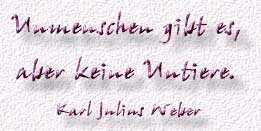 Unmenschen gibt es,
aber keine Untiere.
Karl Julius Weber